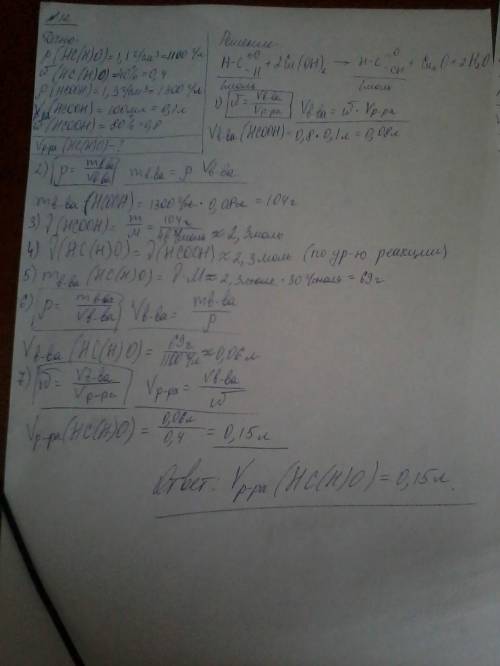 №12
Дано:
ρ(HC(H)O) = 1,1 г/см³ = 1100 г/л
ω(HC(H)O) = 40% = 0,4
ρ(HCOOH) = 1,3 г/см³ = 1300 г/л
Vр-ра(HCOOH) = 100мл = 0,1л
ω(HCOOH) = 80% = 0,8
Vр-ра(HC(H)O) - ?
Решение:
H-C=O-H + 2Cu(OH)₂ → H-C=O-OH + Cu₂O + 2H₂O
1моль 1моль
1) ω = Vв-ва/Vр-ра Vв-ва = ω · Vр-ра
Vв-ва(HCOOH) = 0,8 · 0,1л = 0,08л
2) ρ = mв-ва/Vв-ва mв-ва = ρ · Vв-ва
mв-ва(HCOOH) = 1300 г/л · 0,08л = 104г
3) ν(HCOOH) = m/M = 104г/46 г/моль ≈ 2,3моль
4) ν(HC(H)O) = ν(HCOOH) ≈ 2,3 моль (по ур-ю реакции)
5) mв-ва(HC(H)O) = ν·M ≈ 2,3моль · 30 г/моль = 69г
6) ρ = mв-ва/Vв-ва Vв-ва = mв-ва/ρ
Vв-ва(HC(H)O) = 69г/1100 г/л ≈ 0,06 л
7) ω = Vв-ва/Vр-ра Vр-ра = Vв-ва/ω
Vр-ра(HC(H)O) = 0,06л/0,4 = 0,15 л
Ответ: Vр-ра(HC(H)O) = 0,15 л.